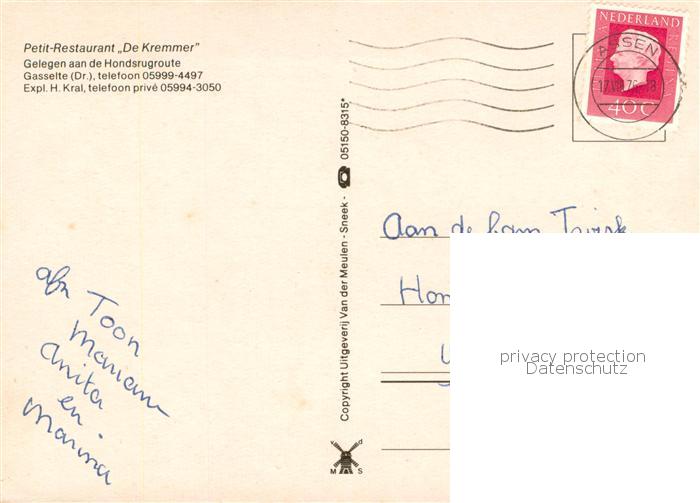 Petit-Restaurant „De Kremmer”
Gelegen aan de Hondsrugroute
Gasselte (Dr.), telefoon 05999-4497
Expl. H. Kral, telefoon privé 05994-3050
NEDERLAND
40c
ASSEN
Copyright Uitgeverij Van der Meulen - Sneek - 05150-8315*
v d
M S
Aan de fam
Hon
privacy protection
Datenschutz
afz Toon
Mariann
Anita
en
Marina